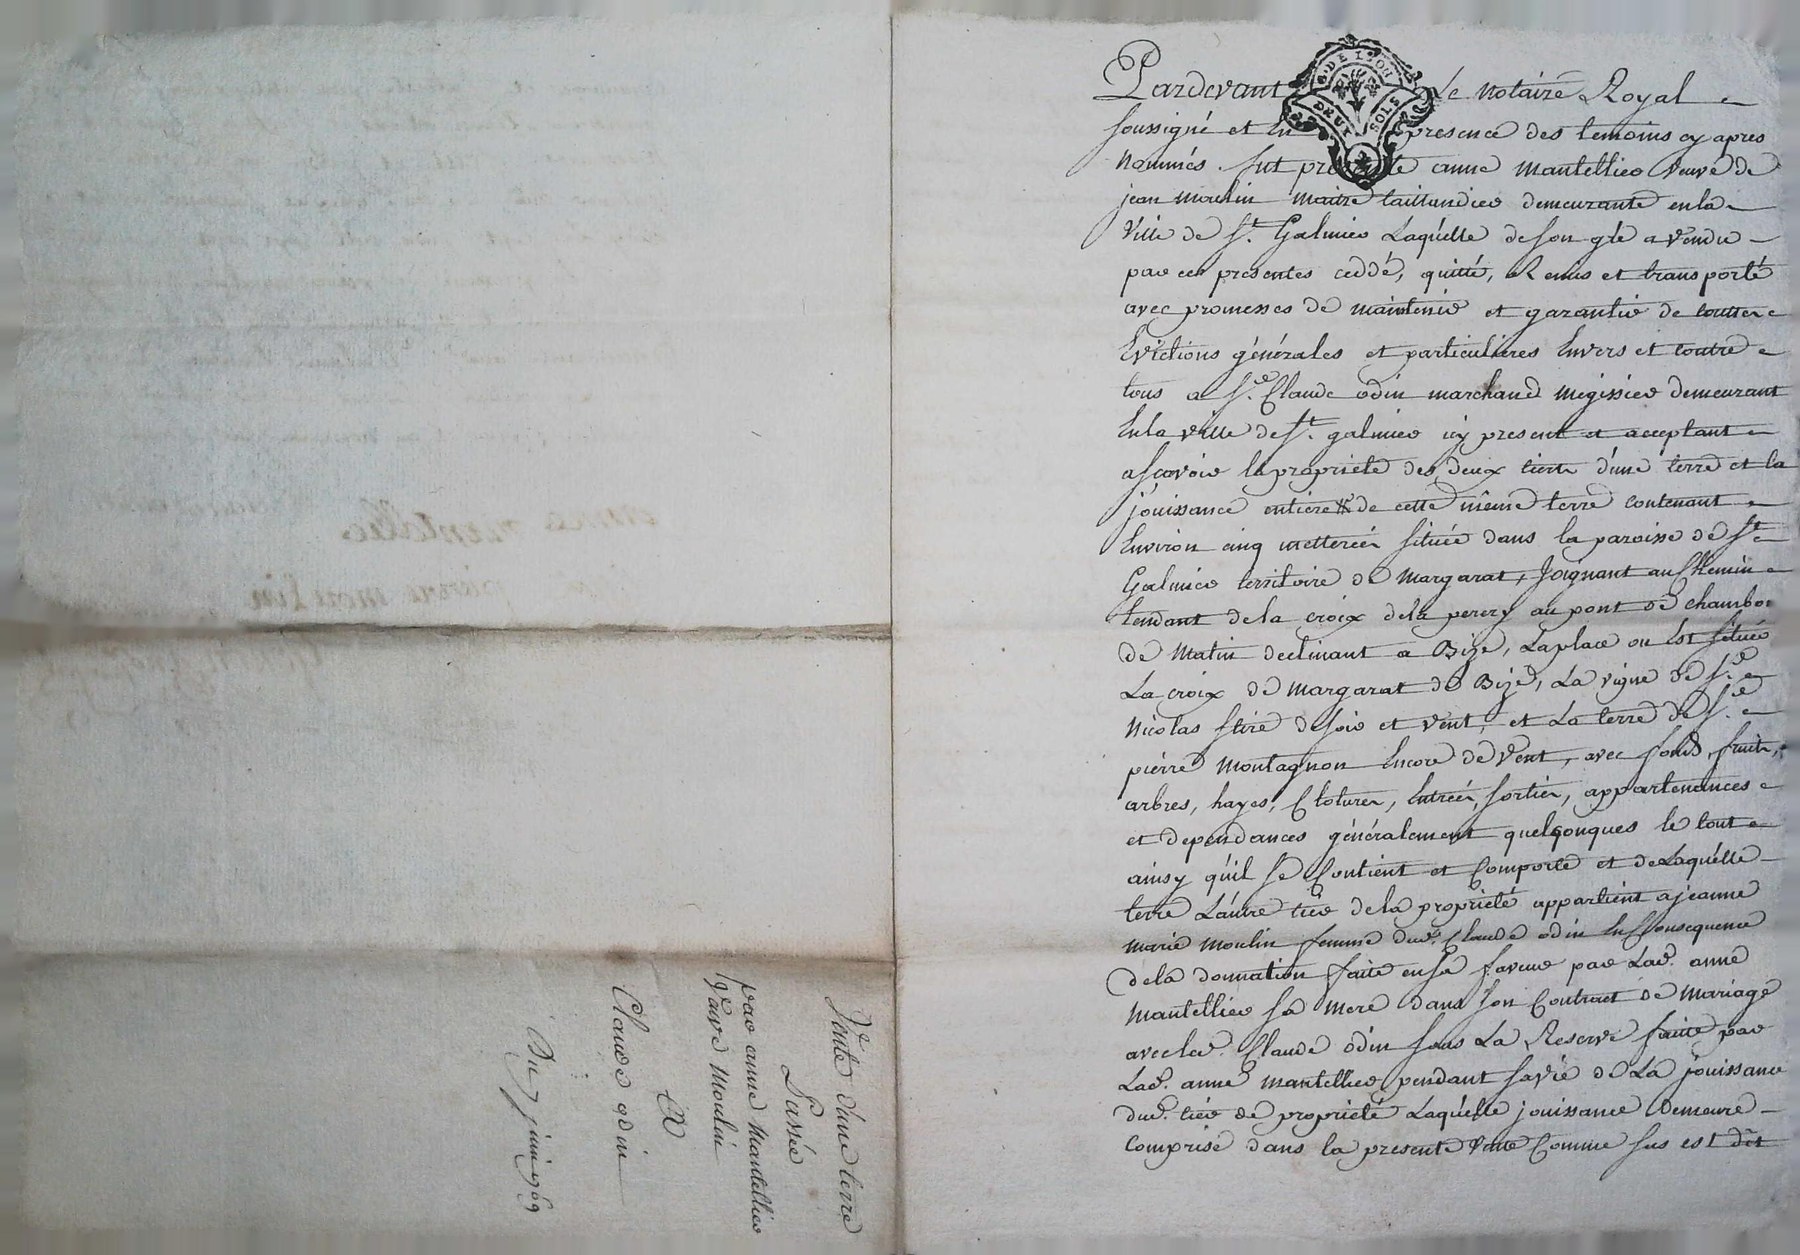 Vente d'une terre
Passée
par anne Mantellier
veuve Moulin
a
Claude odin
Du 7 juin 1769
G. DE LYON
DEUX SOLS
Pardevant Le Notaire Royal
soussigné et En presence des temoins cy apres
Nommés. fut presente anne Mantellier veuve de
jean moulin maitre taillandier demeurante en la
Ville de St. Galmier Laquelle de son gré a vendu
par ces presentes ceddé, quitté, Remis et transporté
avec promesses de maintenir et garantir de touttes
Evictions générales et particulieres Envers et contre
tous a Sr. Claude odin marchand megissier demeurant
En la ville de St. galmier icy present et acceptant
a scavoir la proprieté des deux tiers d'une terre et la
jöuissance entiere de cette même terre contenant
Environ cinq metterées située dans la paroisse de St
Galmier territoire de Margarat, Joignant au Chemin
tendant de la croix de la perery au pont de chambo
de Matin declinant a Bize, La place ou Est située
La croix de Margarat de Bize, La vigne de Sr.
Nicolas Stire de soir et vent, et La terre de Sr.
piérre Montagnon Encore de Vent, avec fond, fruits,
arbres, hayes, Clotures, Entrées, sorties, appartenances
et dependances généralement quelqonques le tout
ainsy qu'il se Contient et Comporte et de Laquélle
terre L'autre tier de la proprieté appartient a jeanne
Marie Moulin femme dud. Claude odin En Consequence
de la donnation faite en sa faveur par Lad. anne
Mantellier sa Mere dans son Contract de Mariage
avec led. Claude odin sous La Reserve faite par
Lad. anne Mantellier pendant sa vie de La jöuissance
dud. tier de proprieté Laquélle jouissance Demeure
comprise dans la presente Vente Comme sus est dit